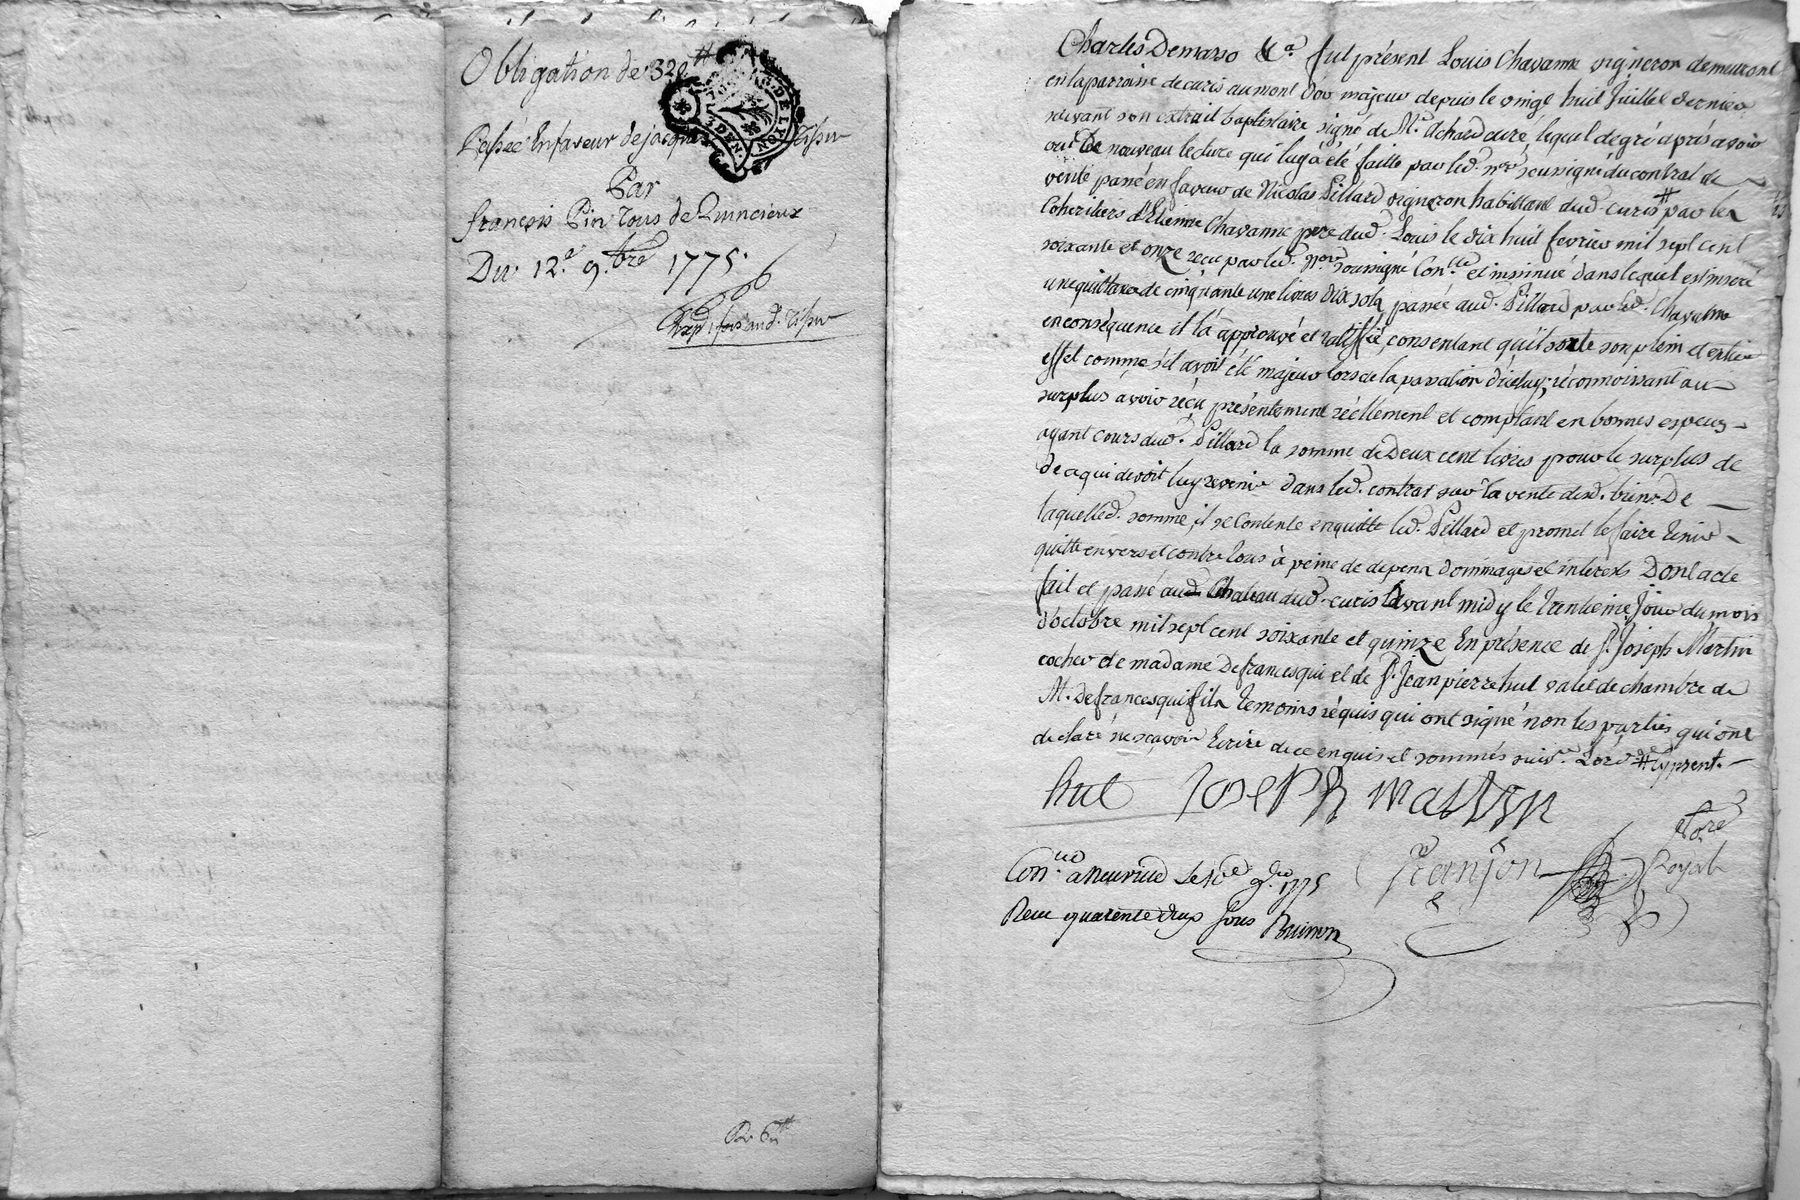 Obligation de 320 ⧺
GEN. DE LYON
3 DEN.
Passée Enfaveur de jacques Tisseur
Par
françois Pin Tous de Quincieux
Du. 12.e 9.bre 1775.
Exp. 1 fois aud. Tisseur
Charles Demarso &.a fut présent Louis Chavanne vigneron demeurant
en la parroisse de curis au mont d'or majeur depuis le vingt huit Juillet dernier
suivant son extrait baptistaire signé de M.r Achard curé, lequel de gré après avoir
oui De nouveau lecture qui luy a été faitte par led. n.re soussigné du contrat de
vente passé en faveur de Nicolas Pillard vigneron habitant dud. curis # par les
Coheritiers d'Etienne Chavanne pere dud. Louis le dix huit fevrier mil sept cent
soixante et onze reçu par led. n.re soussigné Con.lle et insinué dans lequel est inseré
une quittance de cinquante une livres dix sols passée aud. Pillard par led. Chavanne
en conséquence il l'a approuvé et ratiffié, consentant qu'il sorte son plein et entier
effet comme s'il avoit été majeur lors de la passation d'iceluy; réconnoissant au
surplus avoir réçu présentement réellement et comptant en bonnes especes
ayant cours dud. Pillard la somme de Deux cent livres pour le surplus de
de ce qui devoit luy revenir dans led. contrat sur la vente desd. biens De
laquelled. somme, il se Contente en quitte led. Pillard et promet le faire tenir
quitte envers et contre tous à peine de depens dommages et interets Dont acte
fait et passé aud. Chateau dud. curis avant midy le trentieme Jour du mois
d'octobre mil sept cent soixante et quinze En présence de S.r Joseph Martin
cocher de madame Defrancesqui et de S.r Jean pierre hut valet de chambre de
M. defrancesqui fils temoins réquis qui ont signé non les parties qui ont
déclaré ne scavoir Ecrire de ce enquis et sommés suiv.t L'ord.ce # cy present.
hut Joseph martin
et n.re
Royal
Con.llé a Neuville Le 10e 9.bre 1775
Reçu quarente deux sous